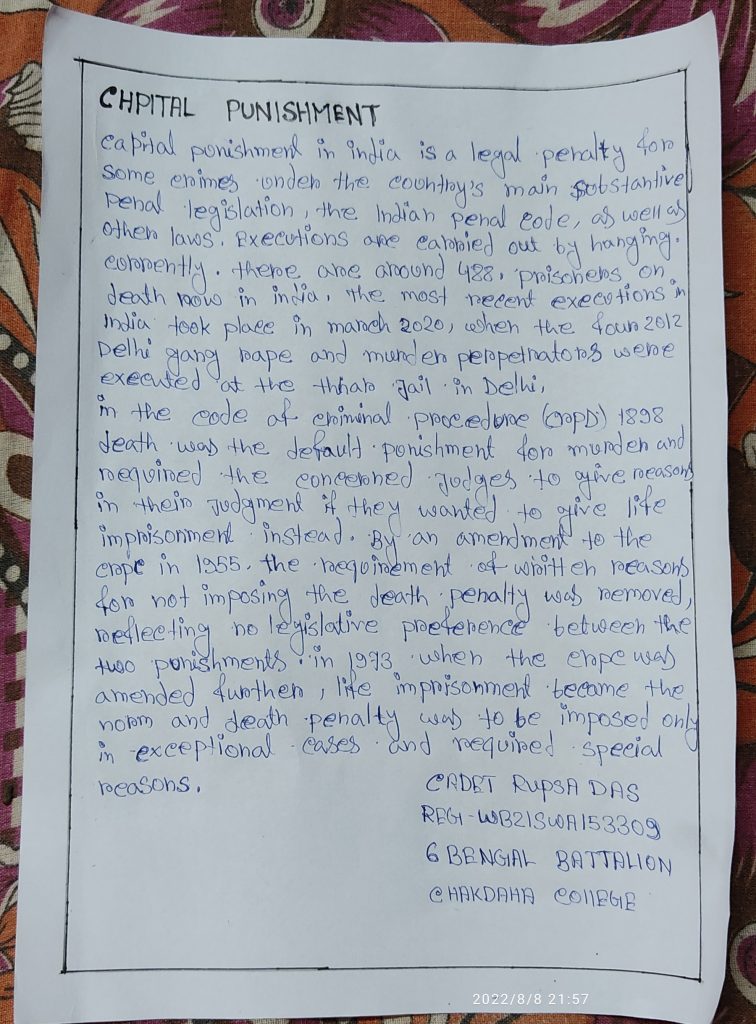 CHPITAL PUNISHMENT
capital punishment in india is a legal penalty for
some crimes under the country's main substantive
penal legislation, the Indian penal code, as well as
other laws. Executions are carried out by hanging.
currently. there are around 488. prisoners on
death row in india. The most recent executions in
india took place in march 2020, when the four 2012
Delhi gang rape and murder perpetrators were
executed at the thhar Jail in Delhi.
in the code of criminal procedure (crpD) 1898
death was the default punishment for murder and
required the concerned Judges to give reasons
in their Judgment if they wanted to give life
imprisonment instead. By an amendment to the
crpc in 1955. the requirement of written reasons
for not imposing the death penalty was removed,
reflecting no legislative preference between the
two punishments. in 1973 when the crpc was
amended further, life imprisonment became the
norm and death penalty was to be imposed only
in exceptional cases and required special
reasons.
CADET RUPSA DAS
REGI-WB21SWA153309
6 BENGAL BATTALION
CHAKDAHA COllEGE
2022/8/8 21:57